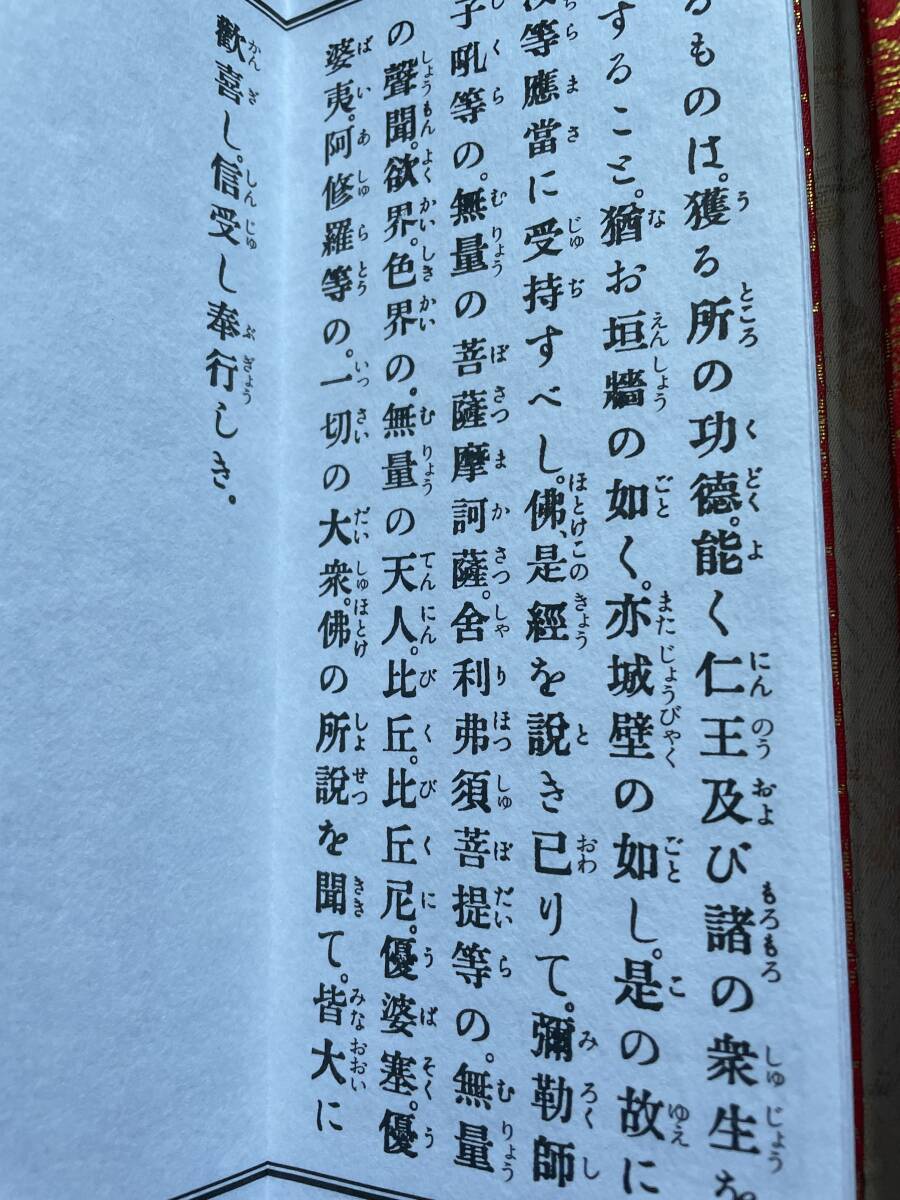 るものは。獲る所の功德。能く仁王及び諸の衆生を
すること。猶お垣牆の如く。亦城壁の如し。是の故に
等應當に受持すべし。佛、是經を説き已りて。彌勒師
子吼等の。無量の菩薩摩訶薩。舍利弗須菩提等の。無量
の聲聞。欲界。色界の。無量の天人。比丘。比丘尼。優婆塞。優
婆夷。阿修羅等の。一切の大衆。佛の所説を聞て。皆大に
歡喜し。信受し奉行しき。